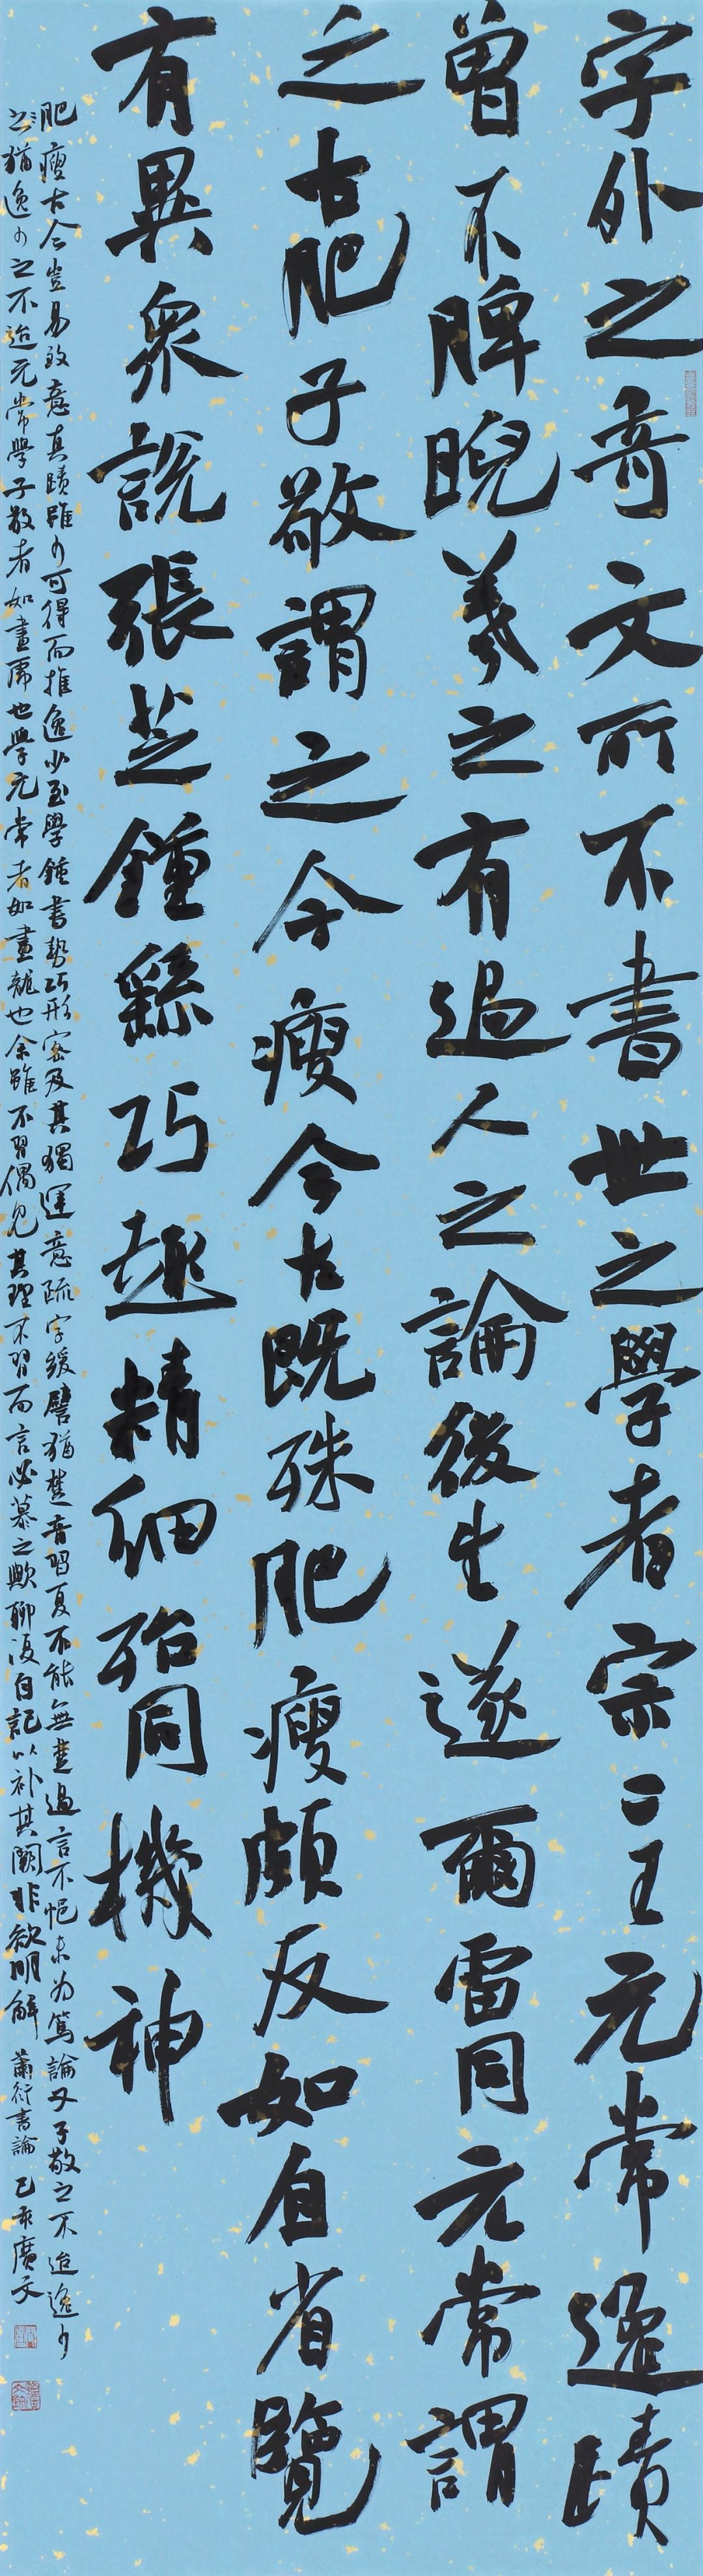 字外之奇文所不書世之學者宗二王元常逸蹟
曾不睥睨羲之有過人之論後生遂爾雷同元常謂
之古肥子敬謂之今瘦今古既殊肥瘦頗反如自省覽
有異衆說張芝鍾繇巧趣精細殆同機神
肥瘦古今豈易致意真蹟雖少可得而推逸少至學鍾書勢巧形密及其獨運意疏字緩譬猶楚音習夏不能無楚過言不悒未為篤論又子敬之不迨逸少
之猶逸少之不迨元常學子敬者如畫虎也學元常者如畫龍也余雖不習偶見其理不習而言必慕之歟聊復自記以補其闕非欲明解 蕭衍書論 己亥廣文